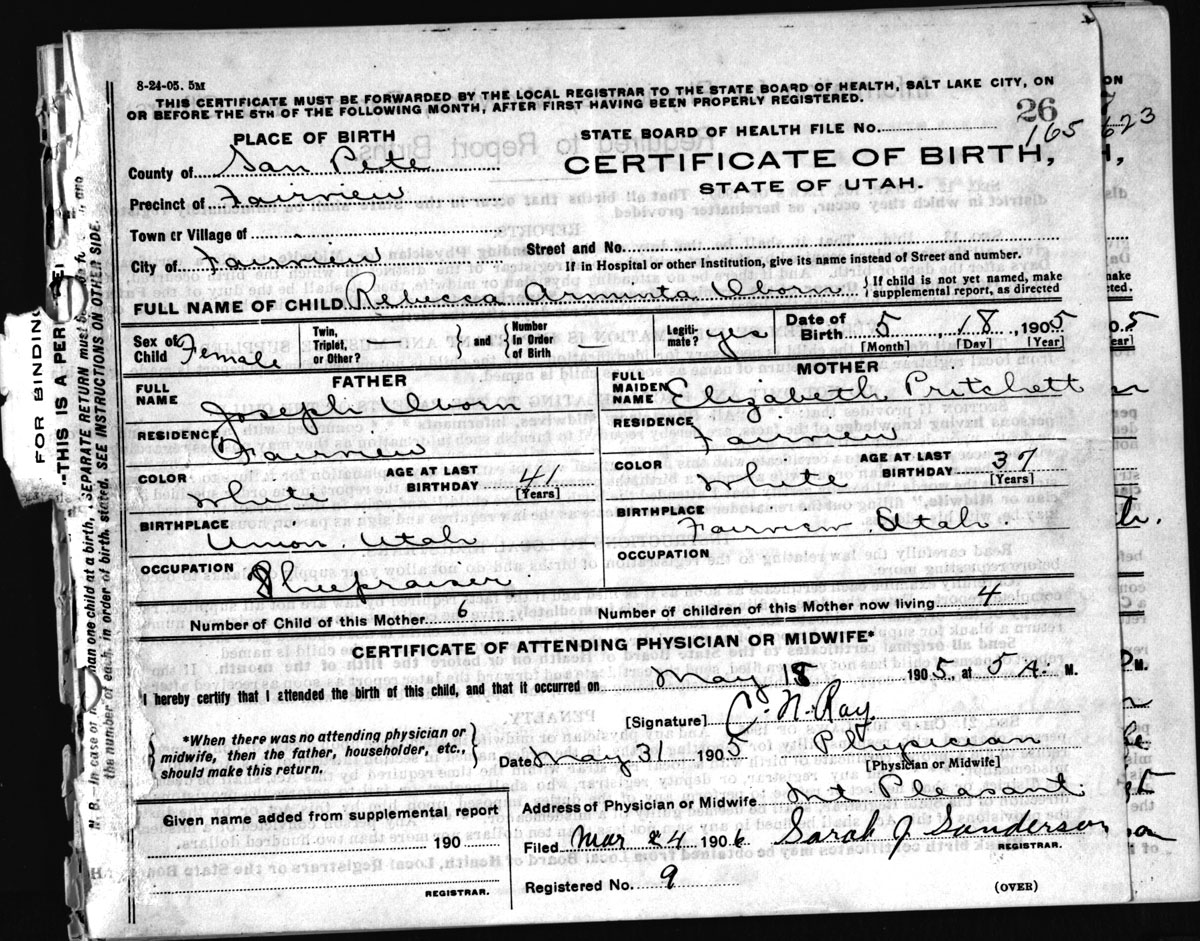 8-24-05. 5M
THIS CERTIFICATE MUST BE FORWARDED BY THE LOCAL REGISTRAR TO THE STATE BOARD OF HEALTH, SALT LAKE CITY, ON
OR BEFORE THE 5TH OF THE FOLLOWING MONTH, AFTER FIRST HAVING BEEN PROPERLY REGISTERED.
26
PLACE OF BIRTH
STATE BOARD OF HEALTH FILE No. 165 623
County of San Pete
CERTIFICATE OF BIRTH,
Precinct of Fairview
STATE OF UTAH.
Town or Village of
Street and No.
City of Fairview
If in Hospital or other Institution, give its name instead of Street and number.
FULL NAME OF CHILD Rebecca Arminta Oborn
{ If child is not yet named, make
supplemental report, as directed
Sex of Child Female
Twin, Triplet, or Other?
} and { Number In Order of Birth
Legitimate? yes
Date of Birth 5 18, 1905
[Month] [Day] [Year]
FATHER
FULL NAME Joseph Oborn
RESIDENCE Fairview
COLOR White
AGE AT LAST BIRTHDAY 41
[Years]
BIRTHPLACE Union. Utah
OCCUPATION Sheepraiser.
MOTHER
FULL MAIDEN NAME Elizabeth Pritchett
RESIDENCE Fairview
COLOR White
AGE AT LAST BIRTHDAY 37
[Years]
BIRTHPLACE Fairview. Utah.
OCCUPATION
Number of Child of this Mother 6
Number of children of this Mother now living 4
CERTIFICATE OF ATTENDING PHYSICIAN OR MIDWIFE*
I hereby certify that I attended the birth of this child, and that it occurred on May 18 1905, at 5 A. M.
[Signature] C. N. Ray.
{ *When there was no attending physician or
midwife, then the father, householder, etc.,
should make this return. }
Date May 31 1905 Physician
[Physician or Midwife]
Given name added from supplemental report
190
REGISTRAR.
Address of Physician or Midwife Mt Pleasant
Filed Mar 24 1906 Sarah J Sanderson
REGISTRAR.
Registered No. 9
(OVER)
FOR BINDING
THIS IS A PER
SEPARATE RETURN must be
SEE INSTRUCTIONS ON OTHER SIDE
N. B.—In case of
than one child at a birth,
the number of each, in order of birth, stated.